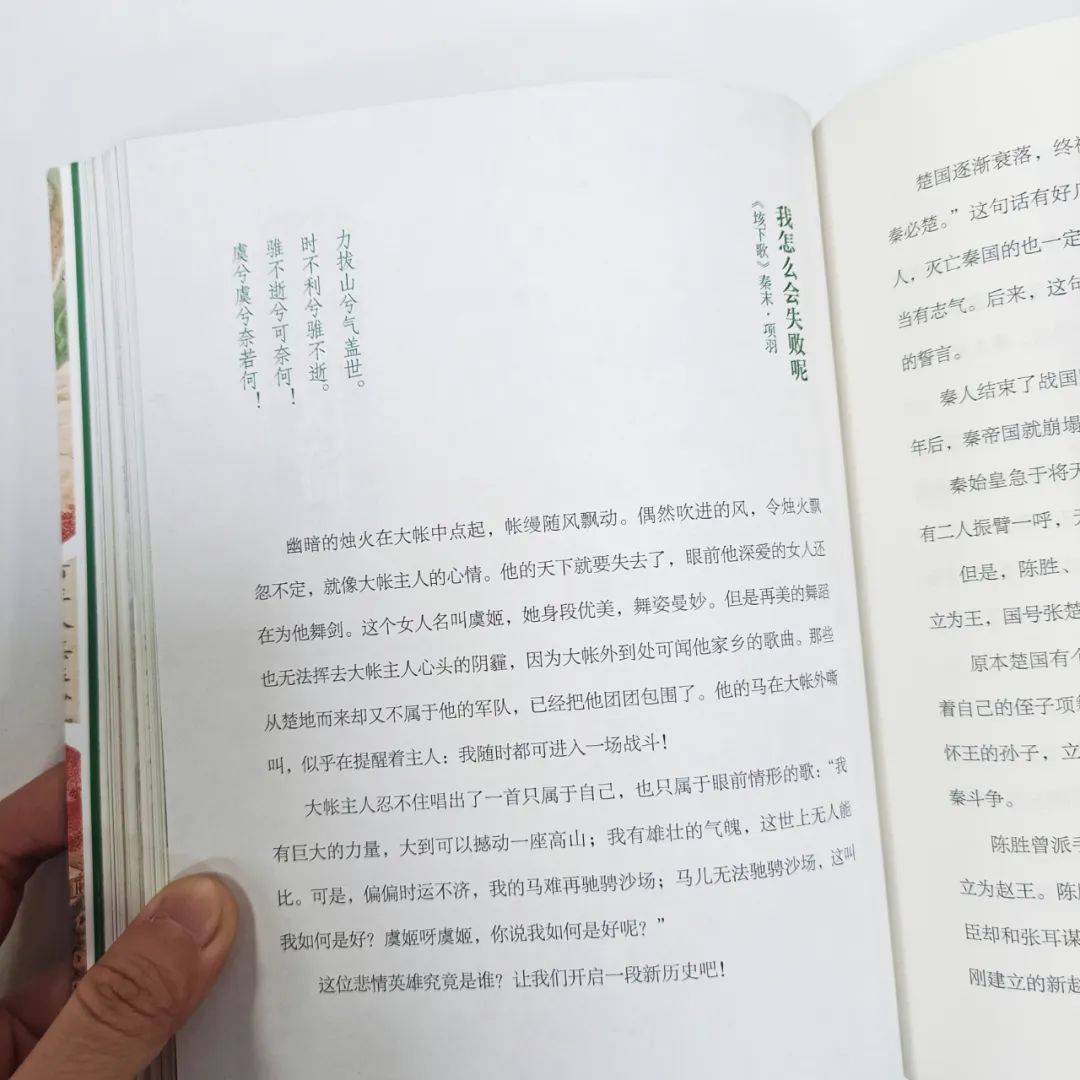 我怎么会失败呢
《垓下歌》秦末·项羽
力拔山兮气盖世。
时不利兮骓不逝。
骓不逝兮可奈何！
虞兮虞兮奈若何！
幽暗的烛火在大帐中点起，帐缦随风飘动。偶然吹进的风，令烛火飘
忽不定，就像大帐主人的心情。他的天下就要失去了，眼前他深爱的女人还
在为他舞剑。这个女人名叫虞姬，她身段优美，舞姿曼妙。但是再美的舞蹈
也无法挥去大帐主人心头的阴霾，因为大帐外到处可闻他家乡的歌曲。那些
从楚地而来却又不属于他的军队，已经把他团团包围了。他的马在大帐外嘶
叫，似乎在提醒着主人：我随时都可进入一场战斗！
大帐主人忍不住唱出了一首只属于自己，也只属于眼前情形的歌：“我
有巨大的力量，大到可以撼动一座高山；我有雄壮的气魄，这世上无人能
比。可是，偏偏时运不济，我的马难再驰骋沙场；马儿无法驰骋沙场，这叫
我如何是好？虞姬呀虞姬，你说我如何是好呢？”
这位悲情英雄究竟是谁？让我们开启一段新历史吧！
楚国逐渐衰落，终
秦必楚。”这句话有好
人，灭亡秦国的也一定
当有志气。后来，这句
的誓言。
秦人结束了战国
年后，秦帝国就崩塌
秦始皇急于将天
有二人振臂一呼，天
但是，陈胜、
立为王，国号张楚
原本楚国有个
着自己的侄子项
怀王的孙子，立
秦斗争。
陈胜曾派手
立为赵王。陈
臣却和张耳谋
刚建立的新赵